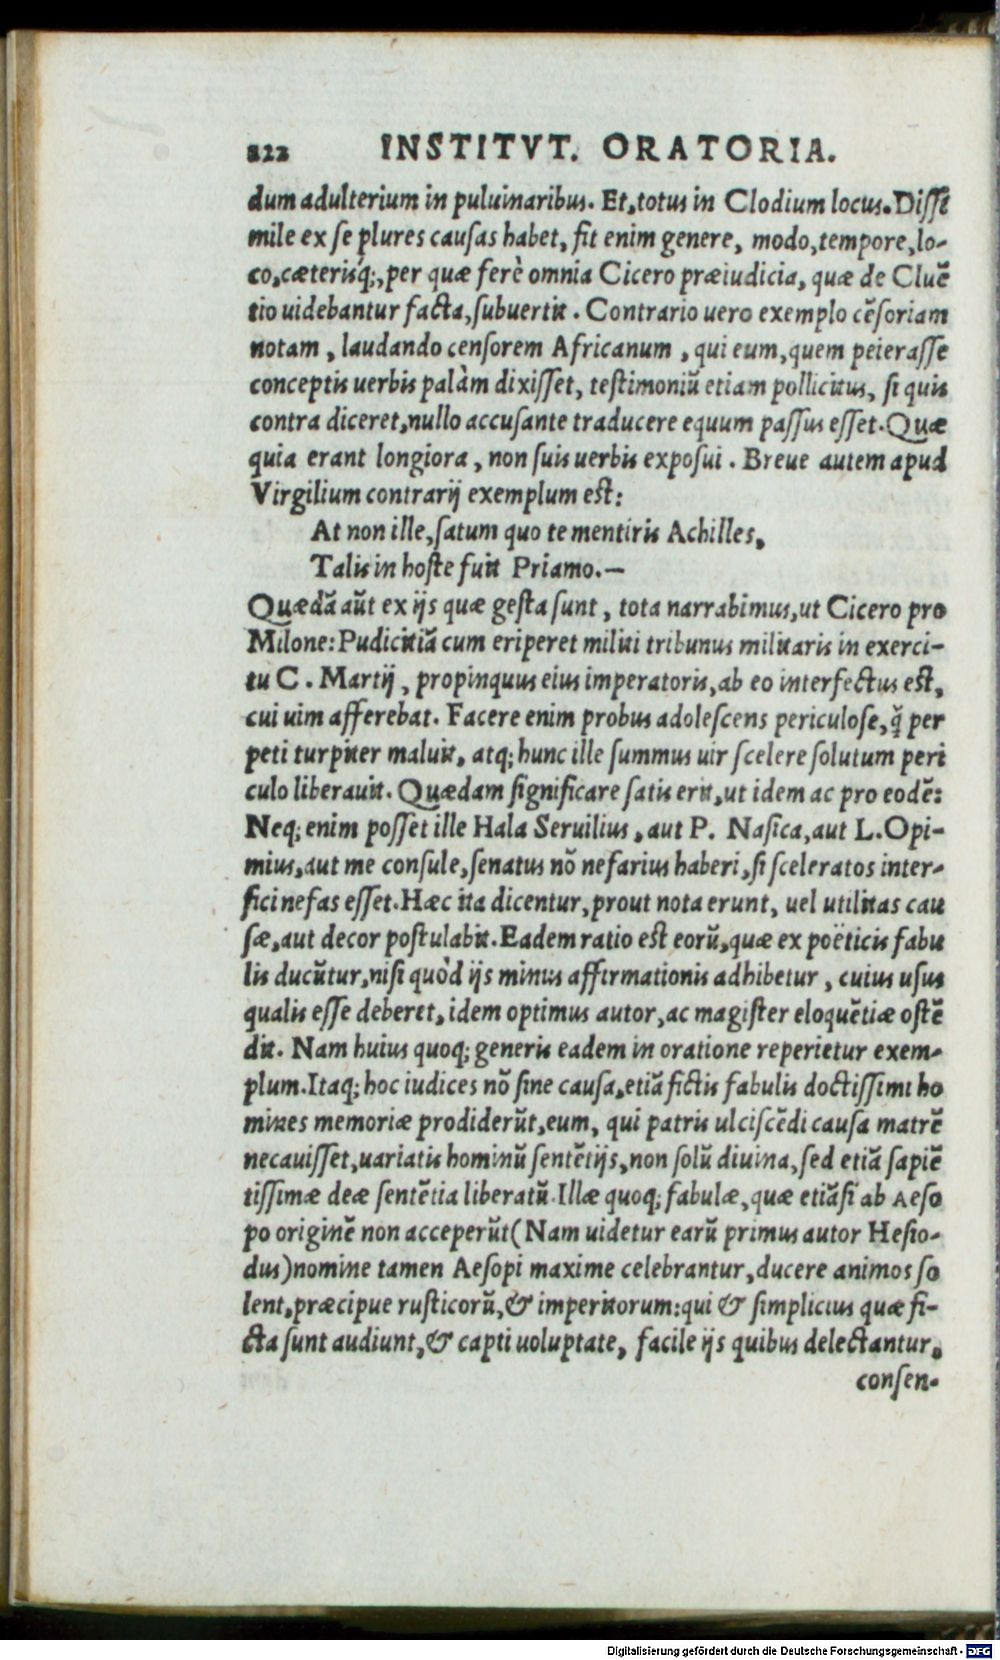 322 INSTITVT. ORATORIA.
dum adulterium in puluinaribus. Et, totus in Clodium locus. Dissi
mile ex se plures causas habet, fit enim genere, modo, tempore, lo-
co, cæterisq́;, per quæ ferè omnia Cicero præiudicia, quæ de Cluẽ
tio uidebantur facta, subuertit. Contrario uero exemplo cẽsoriam
notam, laudando censorem Africanum, qui eum, quem peierasse
conceptis uerbis palàm dixisset, testimoniũ etiam pollicitus, si quis
contra diceret, nullo accusante traducere equum passus esset. Quæ
quia erant longiora, non suis uerbis exposui. Breue autem apud
Virgilium contrarij exemplum est:
At non ille, satum quo te mentiris Achilles,
Talis in hoste fuit Priamo.—
Quædã aũt ex ijs quæ gesta sunt, tota narrabimus, ut Cicero pro
Milone: Pudicitiã cum eriperet militi tribunus militaris in exerci-
tu C. Martij, propinquus eius imperatoris, ab eo interfectus est,
cui uim afferebat. Facere enim probus adolescens periculose, q̃ per
peti turpiter maluit, atq; hunc ille summus uir scelere solutum peri
culo liberauit. Quædam significare satis erit, ut idem ac pro eodẽ:
Neq; enim posset ille Hala Seruilius, aut P. Nasica, aut L. Opi-
mius, aut me consule, senatus nõ nefarius haberi, si sceleratos inter-
fici nefas esset. Hæc ita dicentur, prout nota erunt, uel utilitas cau
sæ, aut decor postulabit. Eadem ratio est eorũ, quæ ex poëticis fabu
lis ducũtur, nisi quòd ijs minus affirmationis adhibetur, cuius usus
qualis esse deberet, idem optimus autor, ac magister eloquẽtiæ ostẽ
dit. Nam huius quoq; generis eadem in oratione reperietur exem-
plum. Itaq; hoc iudices nõ sine causa, etiã fictis fabulis doctissimi ho
mines memoriæ prodiderũt, eum, qui patris ulciscẽdi causa matrẽ
necauisset, uariatis hominũ sentẽtijs, non solũ diuina, sed etiã sapiẽ
tissimæ deæ sentẽtia liberatũ. Illæ quoq; fabulæ, quæ etiãsi ab Aeso
po originẽ non acceperũt (Nam uidetur earũ primus autor Hesio-
dus) nomine tamen Aesopi maxime celebrantur, ducere animos so
lent, præcipue rusticorũ, & imperitorum: qui & simplicius quæ fi-
cta sunt audiunt, & capti uoluptate, facile ijs quibus delectantur,
consen-
Digitalisierung gefördert durch die Deutsche Forschungsgemeinschaft - DFG